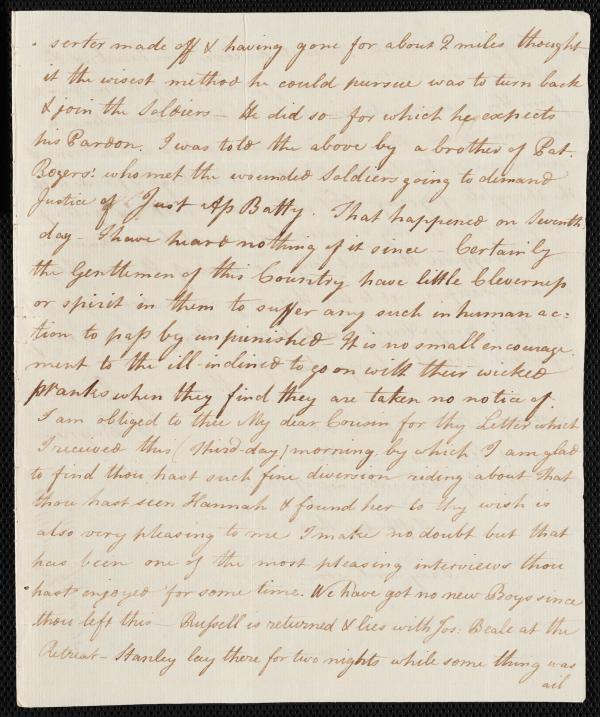 serter made off & having gone for about 2 miles thought
it the wisest method he could pursue was to turn back
& join the Soldiers – He did so for which he expects
his Pardon. I was told the above by a brother of Pat.
Rogers: who met the wounded Soldiers going to demand
Justice of Just Ass Batty. That happened on Seventh
day – I have heard nothing of it since – Certainly
the Gentlemen of this Country have little Cleverness
or spirit in them to suffer any such inhuman ac=
tion to pass by unpunished. It is no small encourage
ment to the ill-inclined to go on with their wicked
pranks when they find they are taken no notice of
I am obliged to thee My dear Cousin for thy Letter which
I received this (third-day) morning by which I am glad
to find thou hast such fine diversion riding about that
thou hast seen Hannah & found her to thy wish is
also very pleasing to me I make no doubt but that
has been one of the most pleasing interviews thou
hast enjoyed for some time. We have got no new Boys since
thou left this – Russell is returned & lies with Jos: Beale at the
Retreat – Stanley lay there for two nights while some thing was
ail